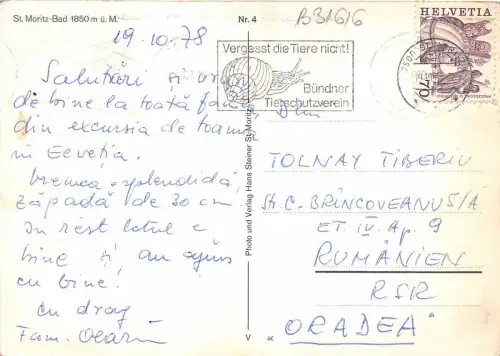 St. Moritz-Bad 1850 m ü. M.
Nr. 4
B316/6
HELVETIA
70
7500
Vergesst die Tiere nicht!
Bündner
Tierschutzverein
19.10.78
Salutări și urări
de bine la toată
din excursia de toamnă
în Elveția.
Vremea splendidă,
zăpadă de 30 cm.
În rest totul e
bine și am ajuns
cu bine!
Cu drag
Fam.
Photo und Verlag Hans Steiner St. Moritz
V
TOLNAY TIBERIU
St. C. BRÎNCOVEANU 5/A
ET IV. Ap. 9
RUMÄNIEN
RSR
"ORADEA"